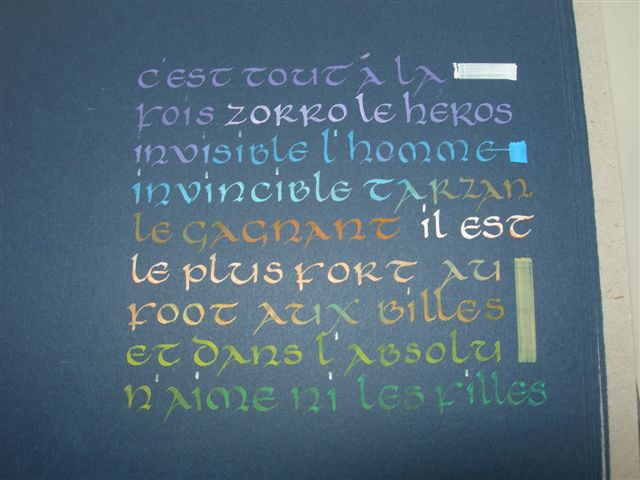 c'est tout à la
fois zorro le heros
invisible l'homme
invincible tarzan
le gagnant il est
le plus fort au
foot aux billes
et dans l'absolu
n'aime ni les filles